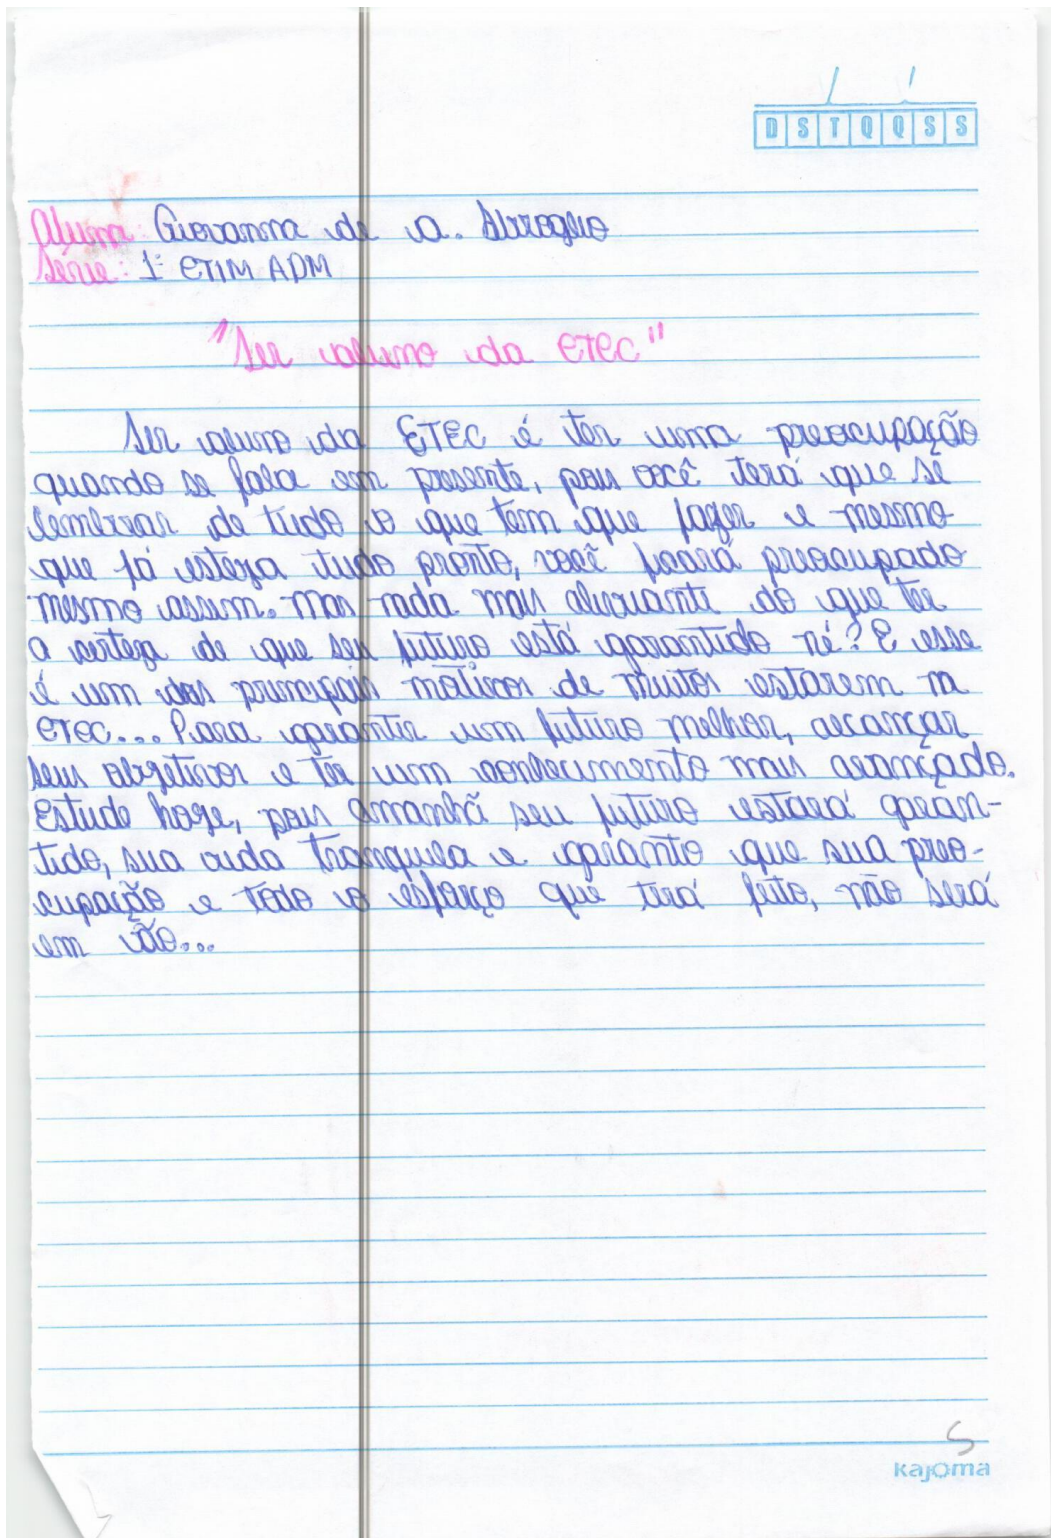 D S T Q Q S S
Aluna: Giovanna de A.
Série: 1º ETIM ADM
"Ser aluno da ETEC"
Ser aluno da ETEC é ter uma preocupação
quando se fala em presente, pois você terá que se
lembrar de tudo o que tem que fazer e mesmo
que já esteja tudo pronto, você ficará preocupado
mesmo assim. Mas nada mais aliviante do que ter
a certeza de que seu futuro está garantido né? E esse
é um dos principais motivos de muitos estarem na
ETEC... Para garantir um futuro melhor, alcançar
seus objetivos e ter um conhecimento mais avançado.
Estude hoje, pois amanhã seu futuro estará garan-
tido, sua vida tranquila e garanto que sua preo-
cupação e todo o esforço que terá feito, não será
em vão...
5
kajoma